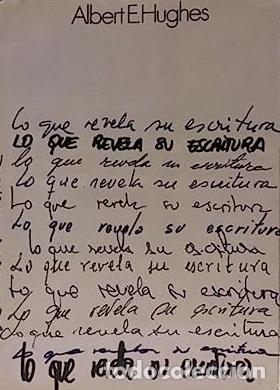 Albert E. Hughes
Lo que revela su escritura
LO QUE REVELA SU ESCRITURA
Lo que revela su escritura
Lo que revela su escritura
Lo que revela su escritura
Lo que revela su escritura
Lo que revela su escritura
Lo que revela su escritura
Lo que revela su escritura
Lo que revela su escritura
Lo que revela su escritura
Lo que revela su escritura
Lo que revela su escritura
todocoleccion